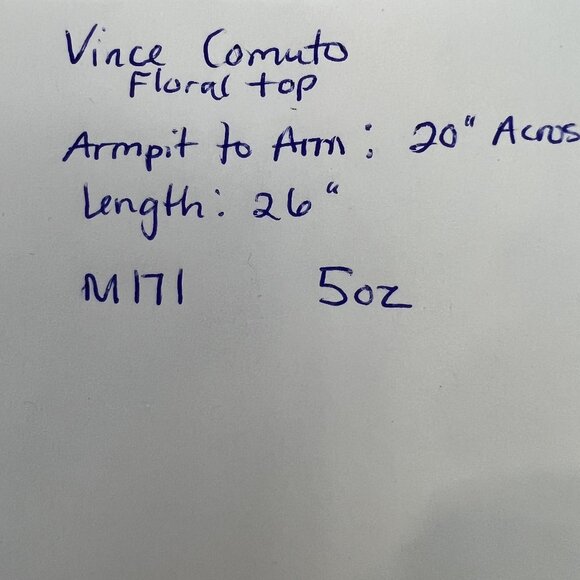 Vince Comuto
Floral top
Armpit to Arm: 20" Acros
Length: 26"
M171 5oz